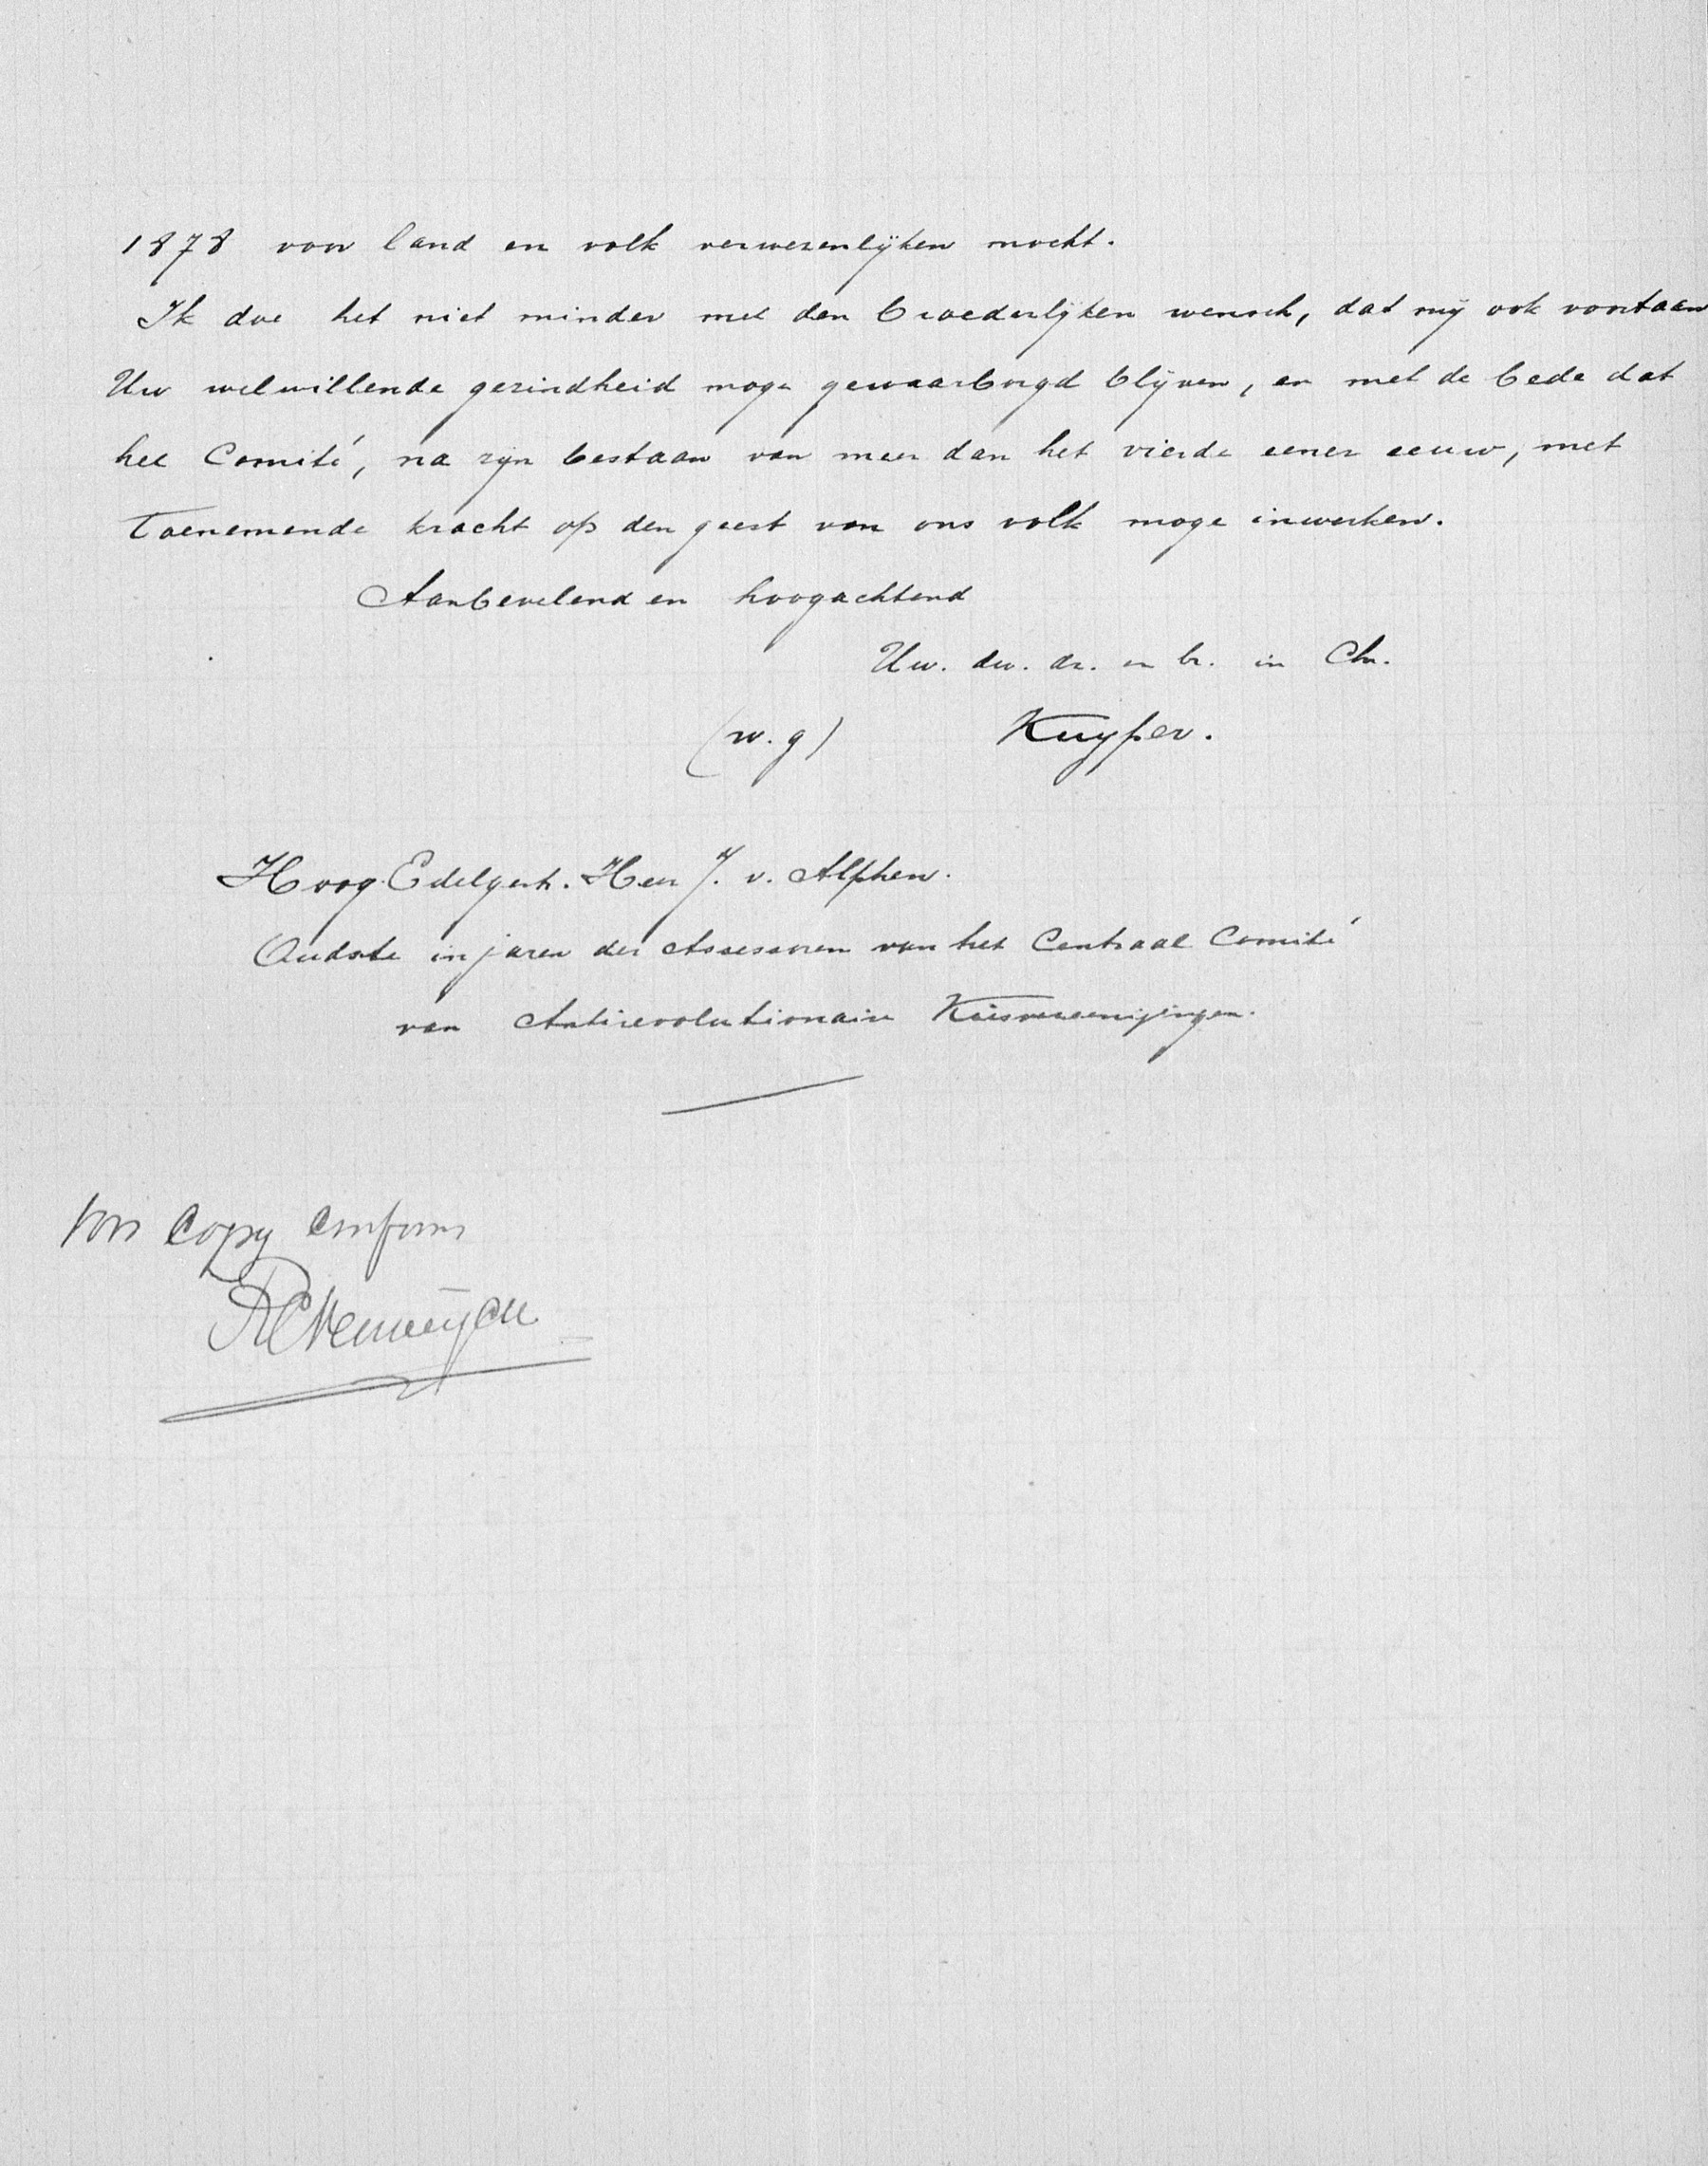 1878 voor land en volk verwezenlijken mocht.
Ik doe het niet minder met den broederlijken wensch, dat mij ook voortaan
Uw welwillende gezindheid moge gewaarborgd blijven, en met de bede dat
het Comité, na zijn bestaan van meer dan het vierde eener eeuw, met
toenemende kracht op den geest van ons volk moge inwerken.
Aanbevelend en hoogachtend
Uw. dw. dr. en br. in Chr.
(w.g) Kuyper.
Hoog Edelgestr. Heer J. v. Alphen.
Oudste in jaren der Assessoren van het Centraal Comité
van Antirevolutionaire Kiesvereenigingen.
Voor Copy conform